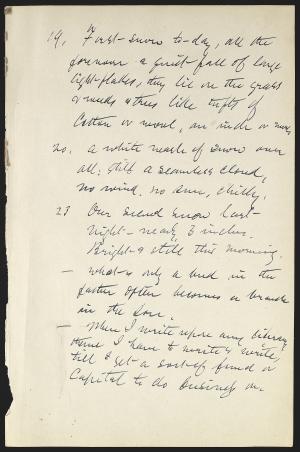 19. First-snow to-day, all the
forenoon a quiet fall of large
light-flakes, they lie on the grass
& weeds & trees like tufts of
Cotton or wool, an inch or more
20. a white mask of snow over
all; still a seamless cloud,
no wind, no sun, chilly.
23 Our second snow last-
night - nearly 3 inches.
Bright & still this morning.
— what is only a bud in the
father often becomes a branch
in the son.
— When I write upon any literary
theme I have to write & write,
till I get a sort of fund or
Capital to do business on.